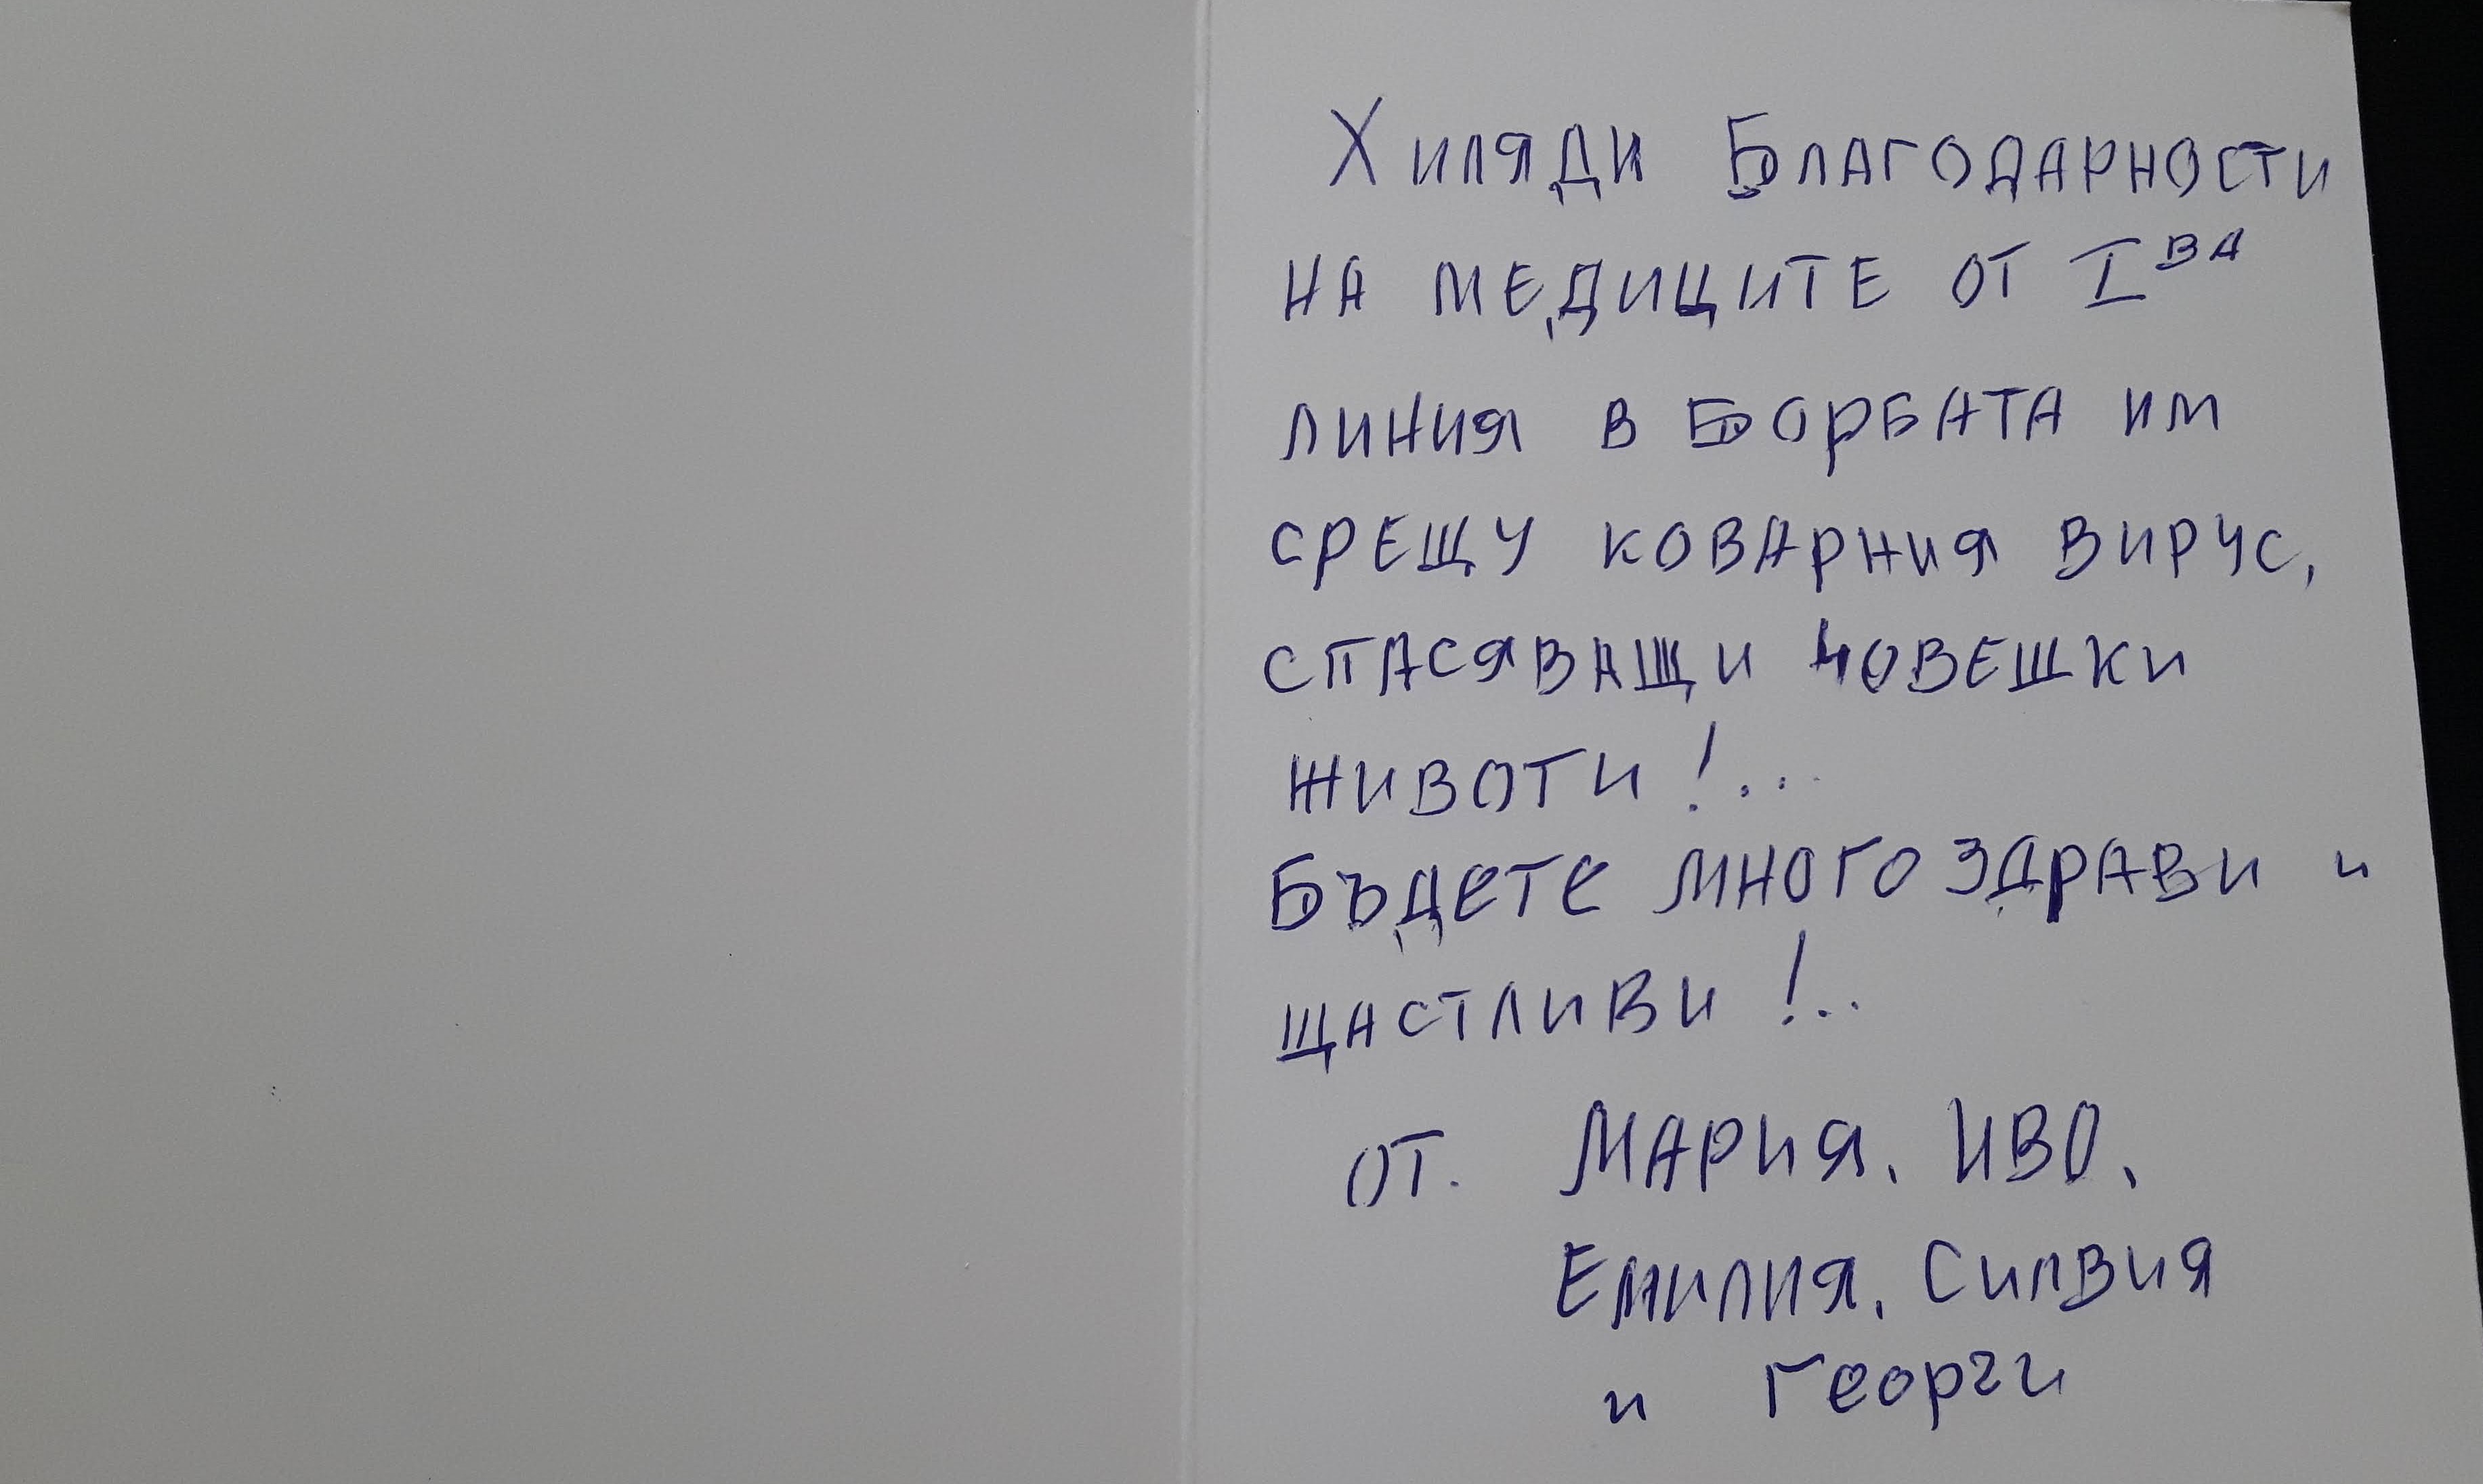 Хиляди Благодарности
на медиците от I ва
линия в борбата им
срещу коварния вирус,
спасяващи човешки
животи!...
Бъдете много здрави и
щастливи!..
от. Мария, Иво,
Емилия, Силвия
и Георги